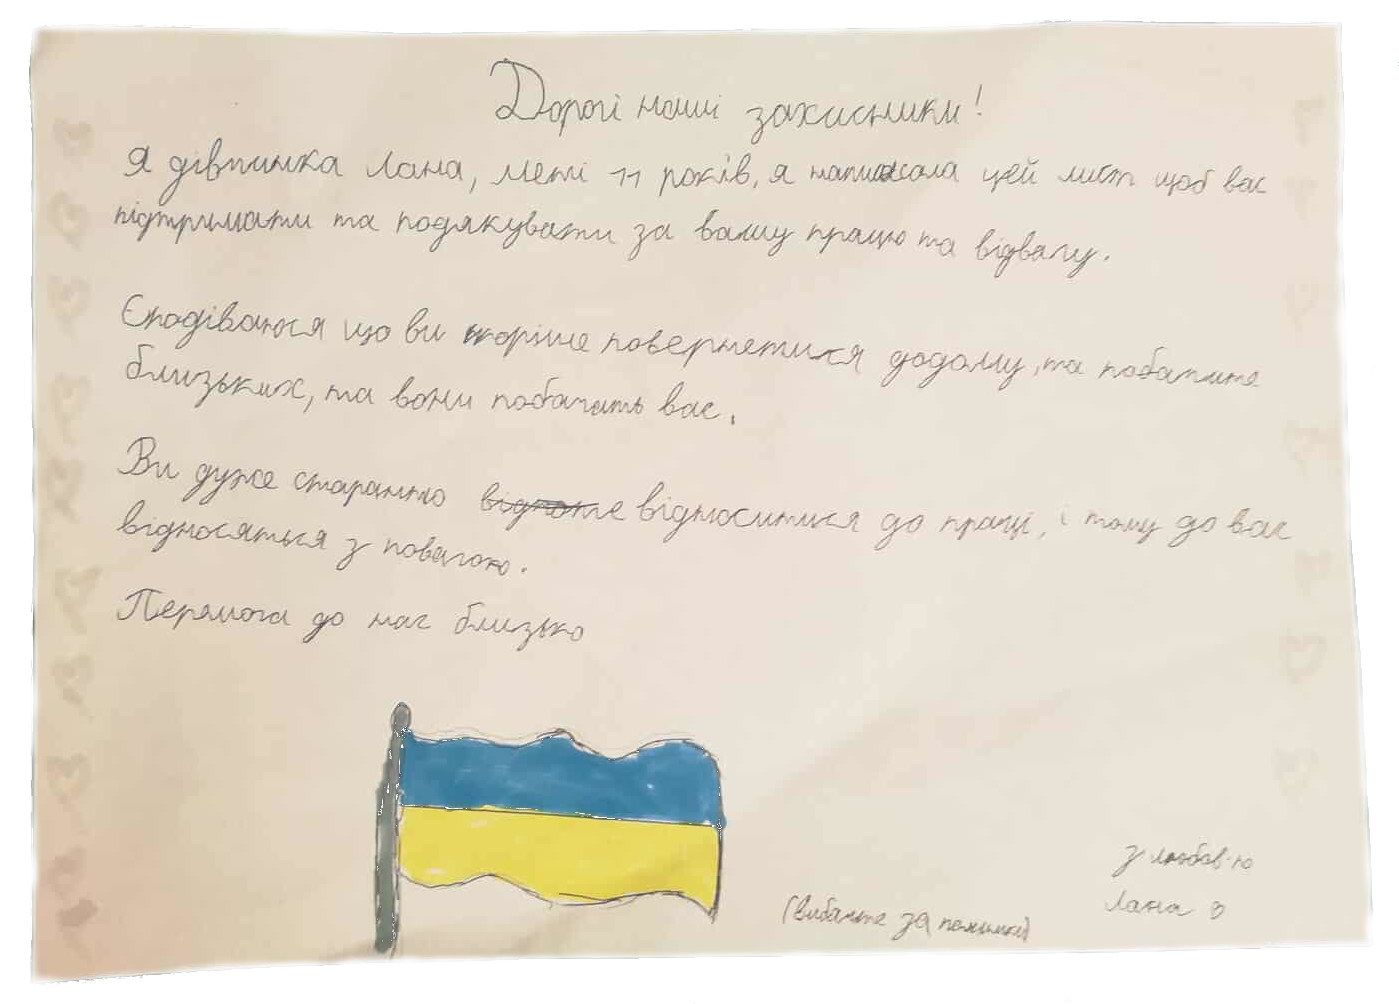 Дорогі наші захисники!
Я дівчинка Лана, мені 11 років, я написала цей лист щоб вас
підтримати та подякувати за вашу працю та відвагу.
Сподіваюся що ви скоріше повернетися додому, та побачите
близьких, та вони побачать вас.
Ви дуже старанно відноситися до праці, і тому до вас
відносяться з повагою.
Перямога до нас близько
З любов'ю
Лана
(Вибачте за помилки)